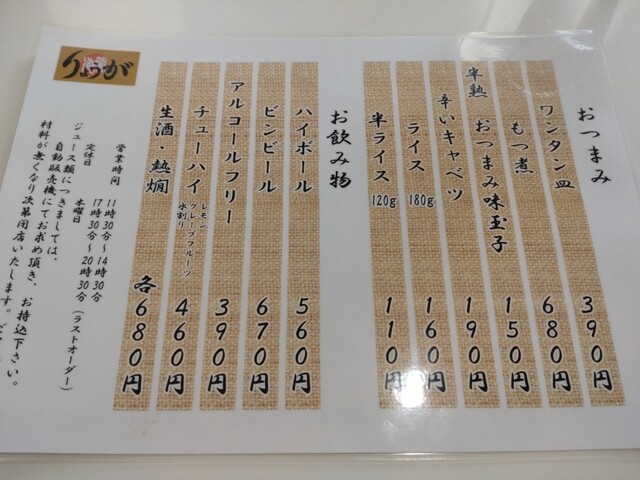 おつまみ
ワンタン皿 390円
もつ煮 680円
半熟 おつまみ味玉子 150円
辛いキャベツ 190円
ライス 180g 160円
半ライス 120g 110円
お飲み物
ハイボール 560円
ビンビール 670円
アルコールフリー 390円
チューハイ レモン グレープフルーツ 水割り 460円
生酒・熱燗 各680円
りょうが
営業時間 11時30分～14時30分
17時30分～20時30分(ラストオーダー)
定休日 木曜日
ジュース類につきましては、
自動販売機にてお求め頂き、お持込下さい。
材料が無くなり次第閉店いたします。